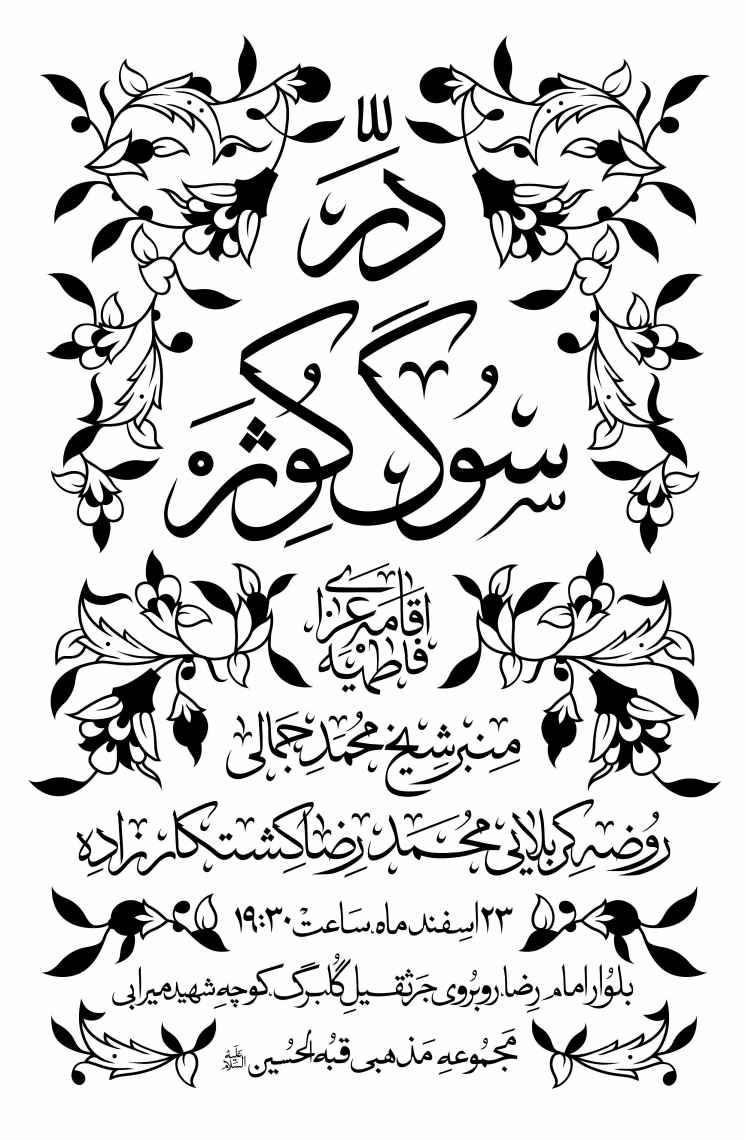 در
سوگ کوثر
اقامه عزای
فاطمیه
منبر شیخ محمد جمالی
روضه کربلایی محمدرضا کشتکارزاده
۲۳ اسفند ماه، ساعت ۱۹:۳۰
بلوار امام رضا، روبروی جرثقیل گلبرگ، کوچه شهید میرابی
مجموعه مذهبی قبه الحسین علیه السلام